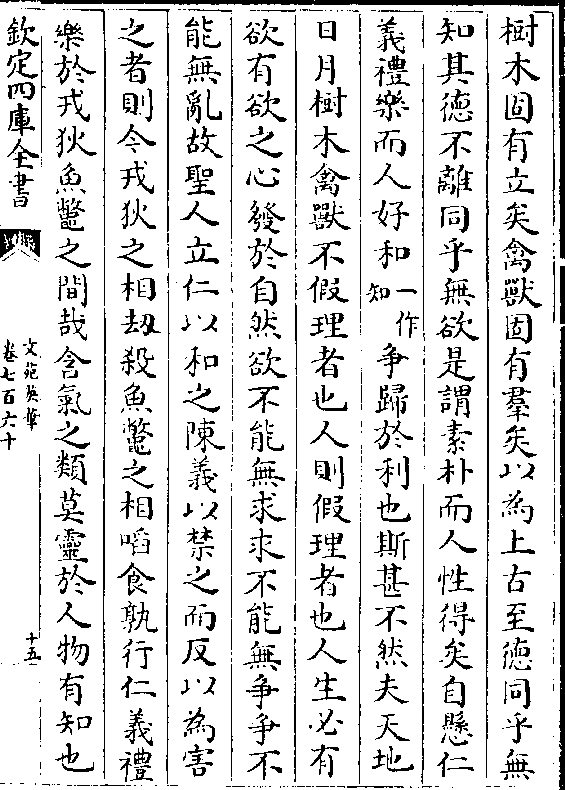 樹木固有立矣禽獸固有羣矣以為上古至徳同乎無
知其徳不離同乎無欲是謂素朴而人性得矣自懸仁
義禮樂而人好和一作知争歸於利也斯甚不然夫天地
日月樹木禽獸不假理者也人則假理者也人生必有
欲有欲之心發於自然欲不能無求求不能無争争不
能無亂故聖人立仁以和之陳義以禁之而反以為害
之者則令戎狄之相刼殺魚鼈之相㗖食孰行仁義禮
樂於戎狄魚鼈之間哉含氣之類莫靈於人物有知也
欽定四庫全書
文苑英華
卷七百六十
十五